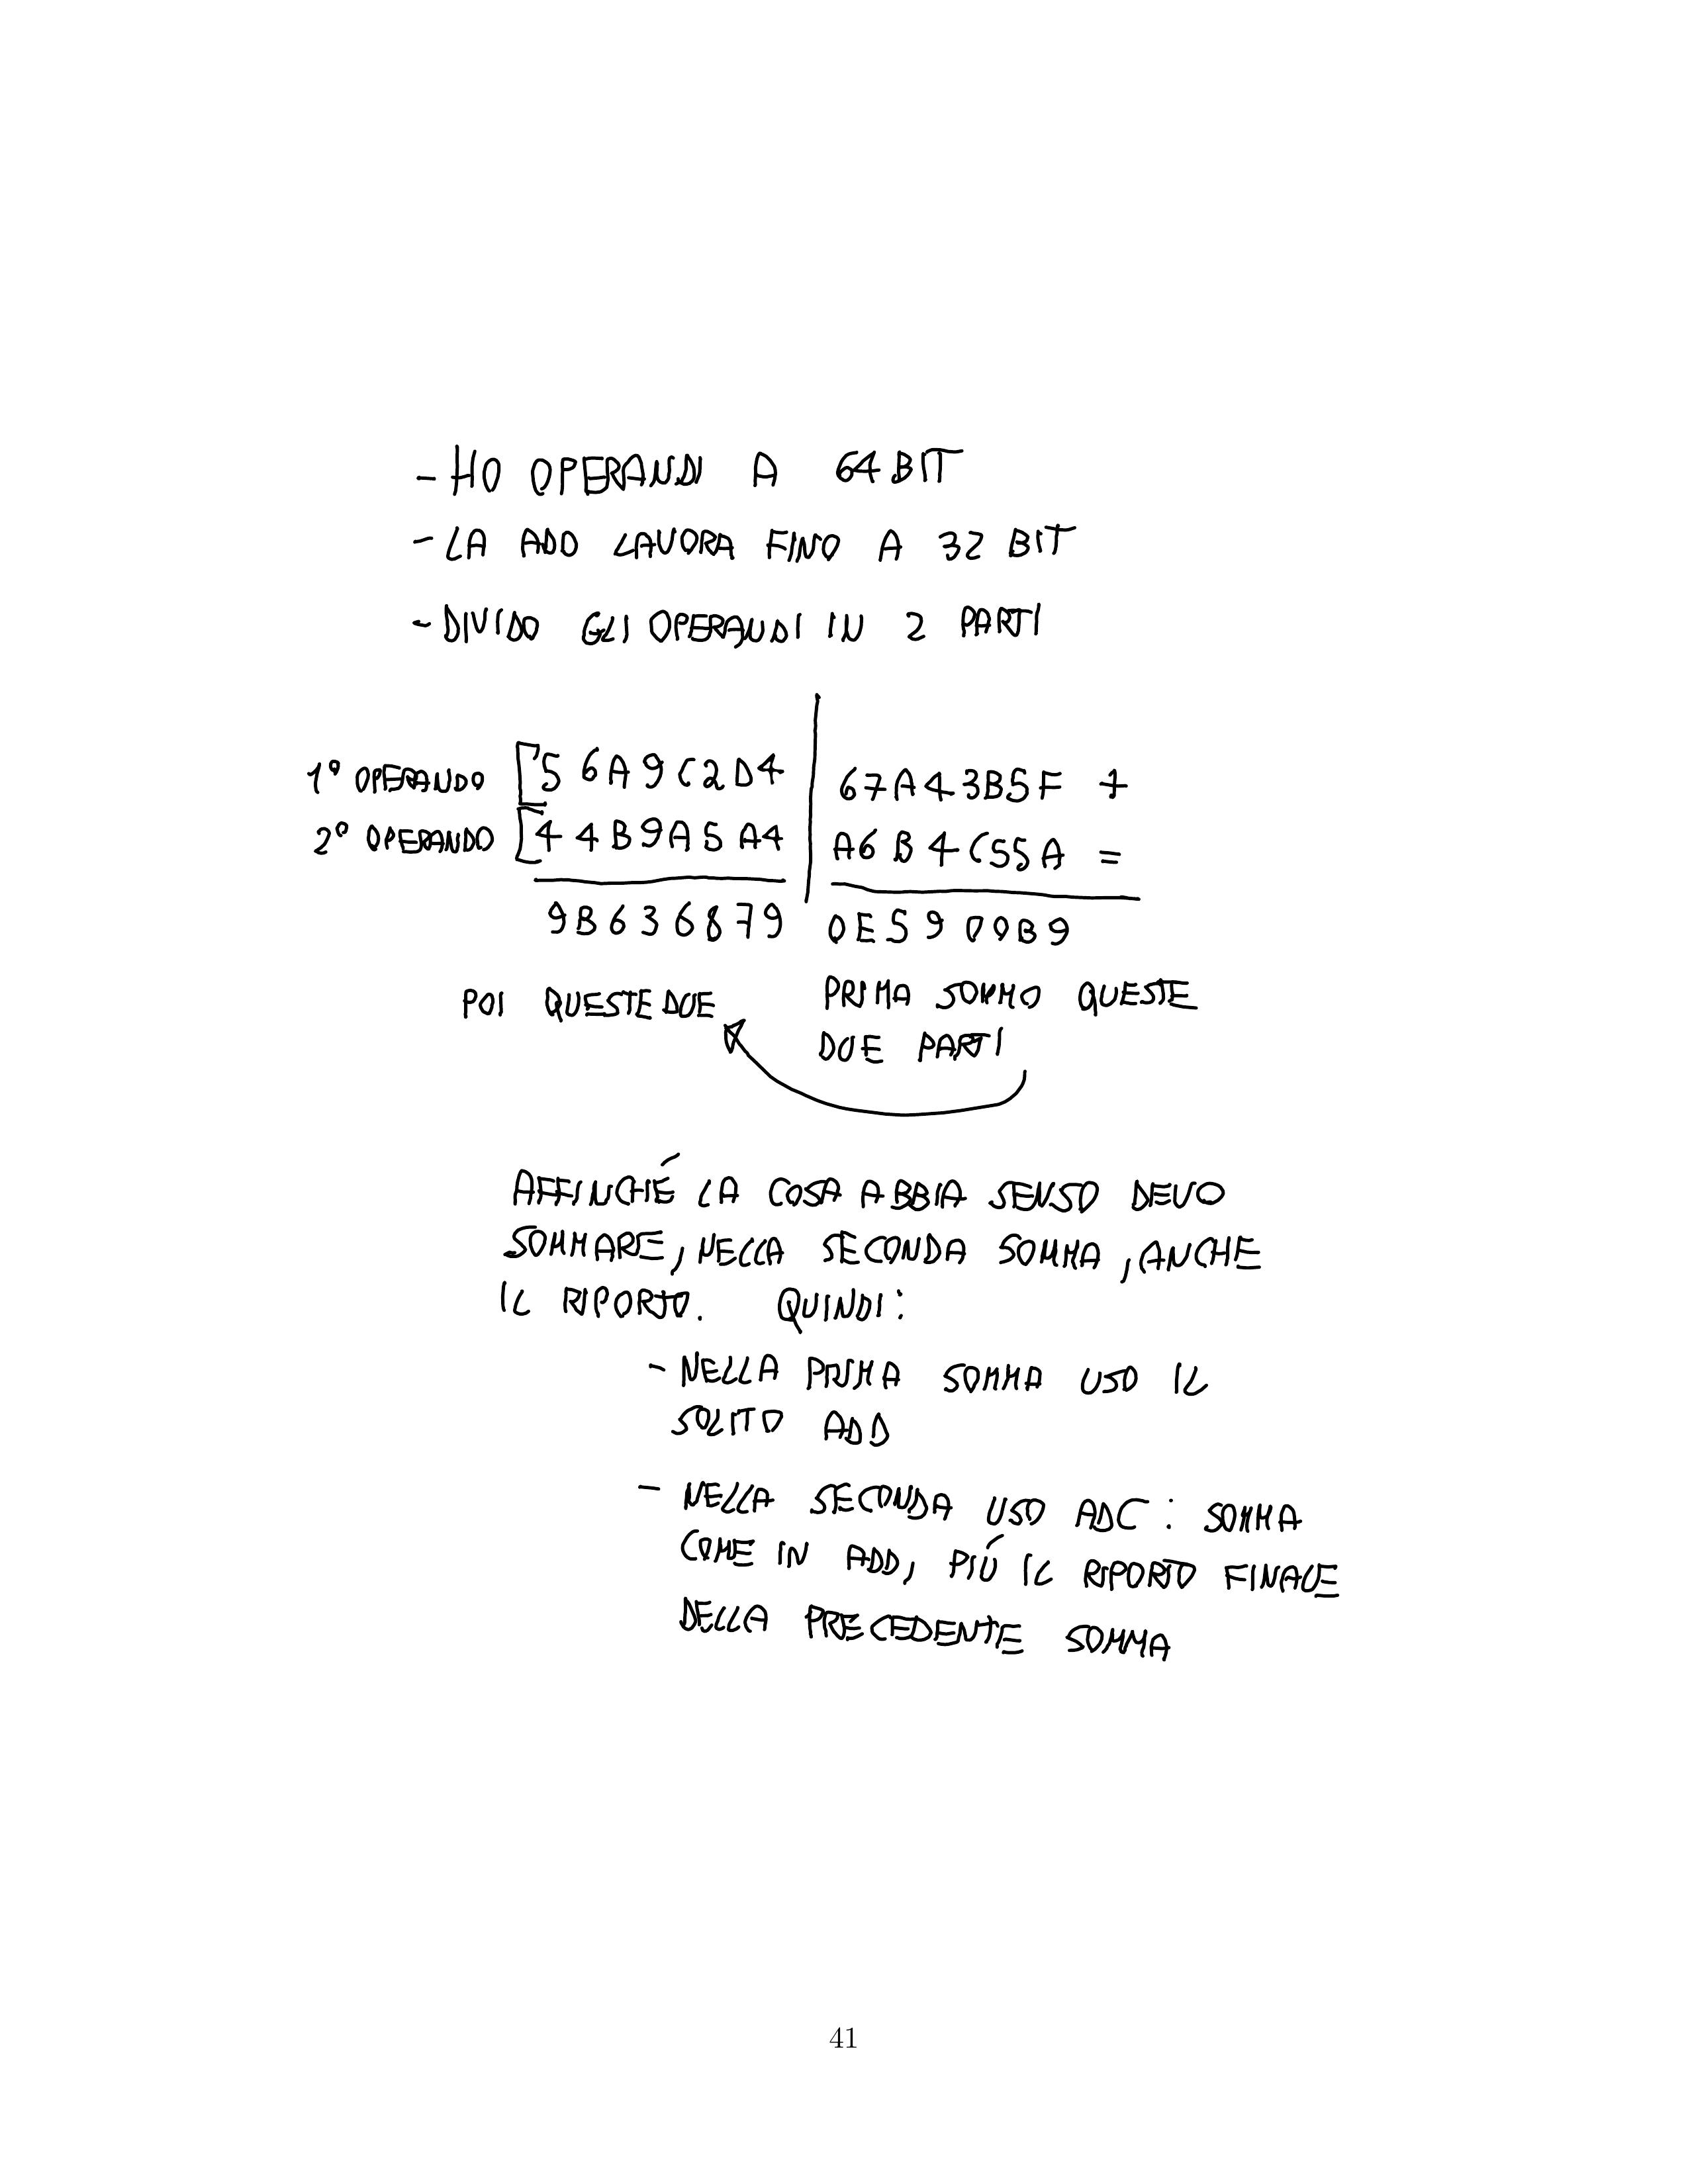 - HO OPERANDI A 64 BIT
- LA ADD LAVORA FINO A 32 BIT
- DIVIDO GLI OPERANDI IN 2 PARTI
1° OPERANDO [56A9C2D4 | 67A43B5F +
2° OPERANDO [44B9A5A4 | A6B4C55A =
9B636879 0E5900B9
POI QUESTE DUE PRIMA SOMMO QUESTE
DUE PARTI
AFFINCHÉ LA COSA ABBIA SENSO DEVO
SOMMARE, NELLA SECONDA SOMMA, ANCHE
IL RIPORTO. QUINDI:
- NELLA PRIMA SOMMA USO IL
SOLITO ADD
- NELLA SECONDA USO ADC: SOMMA
COME IN ADD, PIÚ IL RIPORTO FINALE
DELLA PRECEDENTE SOMMA
41